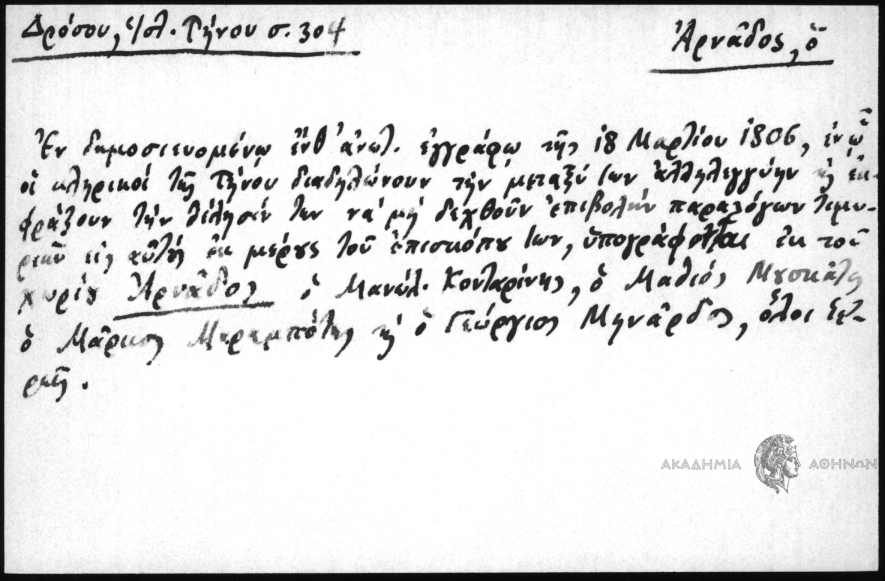 Δρόσου, ἱστ. Τήνου σ. 304
Ἀρνᾶδος, ὁ
Ἐν δημοσιευομένῳ ἔνθ' ἀνωτ. ἐγγράφῳ τῆς 18 Μαρτίου 1806, ἐν ᾧ
οἱ κληρικοί τῆς Τήνου διαδηλώνουν τὴν μεταξύ των ἀλληλεγγύην κ ἐκ-
φράζουν τὴν θέλησίν των νὰ μὴ δεχθοῦν ἐπιβολὴν παραλόγων τιμω-
ριῶν εἰς αὐτούς ἐκ μέρους τοῦ ἐπισκόπου των, ὑπογράφονται ἐκ τοῦ
χωρίου Ἀρνᾶδος ὁ Μανώλ. Κονταρίνης, ὁ Μαθιός Μοσκάτης
ὁ Μᾶρκος κ ὁ Γεώργιος Μηνάρδος, ὅλοι ἱε-
ρεῖς.
ΑΚΑΔΗΜΙΑ ΑΘΗΝΩΝ